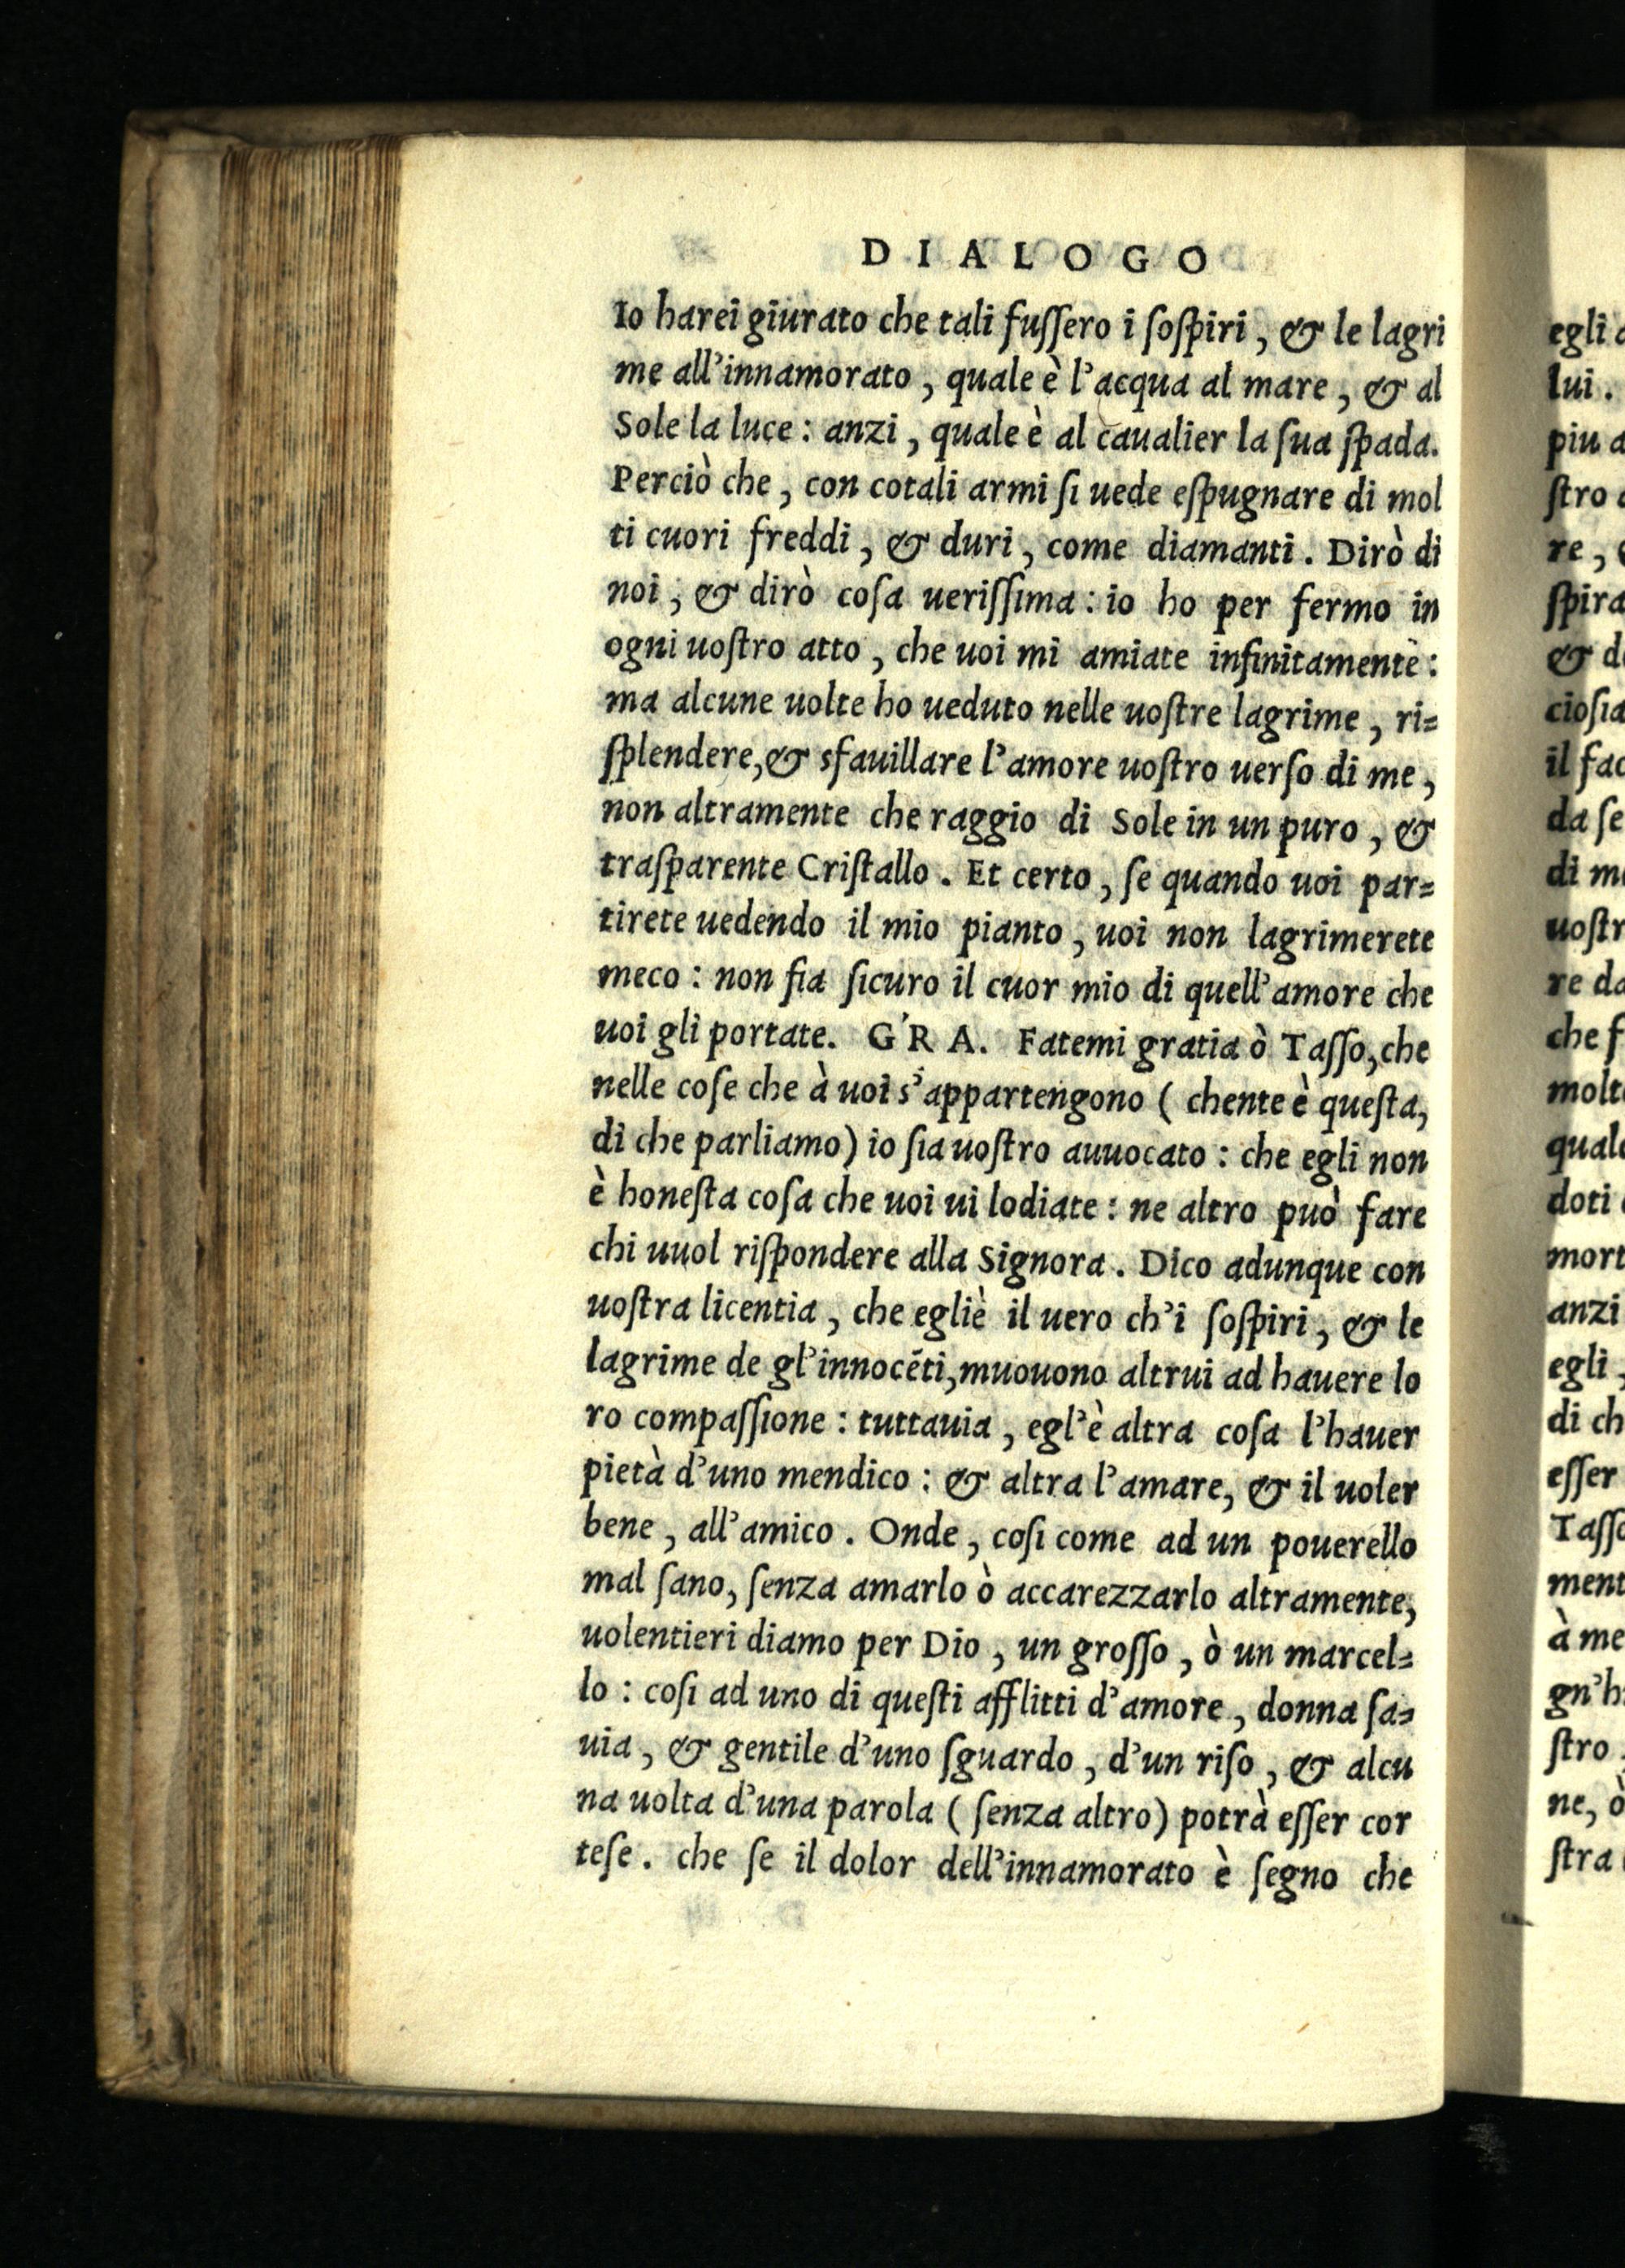 DIALOGO
Io harei giurato che tali fuſſero i ſoſpiri, & le lagri
me all'innamorato, quale è l'acqua al mare, & al
Sole la luce: anzi, quale è al caualier la ſua ſpada.
Perciò che, con cotali armi ſi uede eſpugnare di mol
ti cuori freddi, & duri, come diamanti. Dirò di
noi, & dirò coſa ueriſſima: io ho per fermo in
ogni uoſtro atto, che uoi mi amiate infinitamente:
ma alcune uolte ho ueduto nelle uoſtre lagrime, ri=
ſplendere, & sfauillare l'amore uoſtro uerſo di me,
non altramente che raggio di Sole in un puro, &
traſparente Criſtallo. Et certo, ſe quando uoi par=
tirete uedendo il mio pianto, uoi non lagrimerete
meco: non fia ſicuro il cuor mio di quell'amore che
uoi gli portate. GRA. Fatemi gratia ò Taſſo, che
nelle coſe che à uoi s'appartengono (chente è queſta,
di che parliamo) io ſia uoſtro auuocato: che egli non
è honeſta coſa che uoi ui lodiate: ne altro può fare
chi uuol riſpondere alla Signora. Dico adunque con
uoſtra licentia, che egliè il uero ch'i ſoſpiri, & le
lagrime de gl'innocēti, muouono altrui ad hauere lo
ro compaſſione: tuttauia, egl'è altra coſa l'hauer
pietà d'uno mendico: & altra l'amare, & il uoler
bene, all'amico. Onde, coſi come ad un pouerello
mal ſano, ſenza amarlo ò accarezzarlo altramente,
uolentieri diamo per Dio, un groſſo, ò un marcel=
lo: coſi ad uno di queſti afflitti d'amore, donna ſa=
uia, & gentile d'uno ſguardo, d'un riſo, & alcu
na uolta d'una parola (ſenza altro) potrà eſſer cor
teſe. che ſe il dolor dell'innamorato è ſegno che
egli
lui.
piu
ſtro
re,
ſpira
&
cioſia
il fac
da ſe
di
uoſtr
re da
che f
molt
qual
doti
mort
anzi
egli,
di ch
eſſer
Taſſo
ment
à me
gn'h
ſtro
ne, ò
ſtra